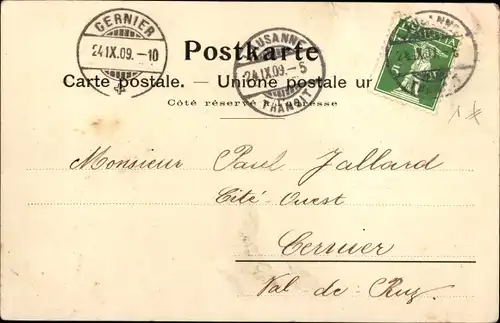 CERNIER
24.IX.09.-10
LAUSANNE
24.IX.09.-5
TRANSIT
Postkarte
Carte postale. — Union postale un
Côté réservé à l'adresse
Monsieur Paul Jallard
Cité-Ouest
Cernier
Val-de-Ruz.
1 *